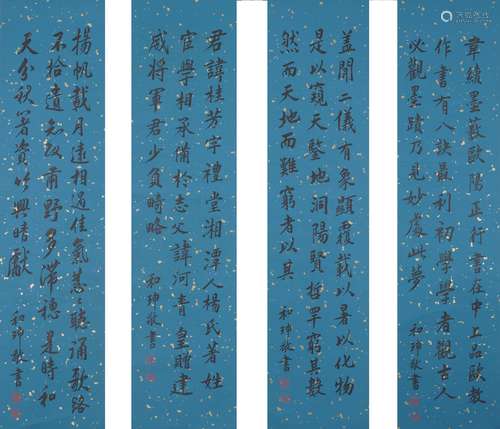 韋續墨薮歐陽正行書在中上品歐教
作書有八訣最利初學學者觀古人
必觀墨蹟乃見妙處此夢
和珅敬書
盖聞二儀有象顯覆載以暑以化物
是以窺天鑒地洞陽賢哲罕窮其數
然而天地而難窮者以其
和珅敬書
君諱桂芳字禮堂湘潭人楊氏著姓
宦學相承備於志父諱河青皇贈建
威將軍君少負畸略
和珅敬書
揚帆載月遠相過佳氣蔥〻聽誦歌路
不拾遺知政肅野多滯穗是時和
天分秋暑資吟興晴獻
和珅敬書